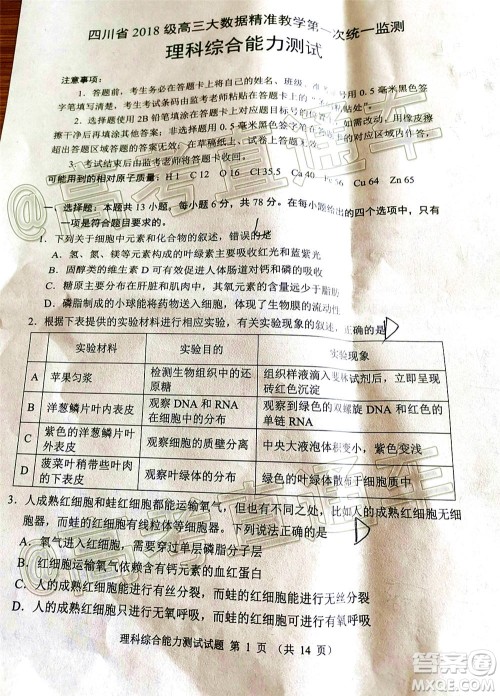 四川省 2018 级高三大数据精准教学第一次统一监测
理科综合能力测试
注意事项：
1. 答题前，考生务必在答题卡上将自己的姓名、班级、
签字笔填写清楚，考生考试条码由监考老师粘贴在答题卡上的
2. 选择题使用 2B 铅笔填涂在答题卡上对应题目标号的位置上，如需改动，用橡皮擦
擦干净后再填涂其他答案；非选择题用 0.5 毫米黑色签字
出答题区域答题的答案无效；在草稿纸上、试卷上答题无效。
3. 考试结束后由监考老师将答题卡收回。
可能用到的相对原子质量：H 1 C 12 O 16 Cl 35.5 Ca 40 Cu 64 Zn 65
一、选择题：本题共 13 小题，每小题 6 分，共 78 分。在每小题给出的四个选项中，只有
一项是符合题目要求的。
1. 下列关于细胞中元素和化合物的叙述，错误的是
A. 氢、氮、镁等元素构成的叶绿素主要吸收红光和蓝紫光
B. 固醇类的维生素 D 可有效促进人体肠道对钙和磷的吸收
C. 糖原主要分布在肝脏和肌肉中，其氧元素的含量多于脂肪
D. 磷脂制成的小球能将药物运输到细胞，体现了生物膜的流动性
2. 根据下表提供的实验材料进行相应实验，有关实验现象的叙述，正确的是 D
实验材料 实验目的 实验现象
A 苹果匀浆 检测生物组织中的还原糖 组织样液滴入斐林试剂后，立即出现砖红色沉淀
B 洋葱鳞片叶内表皮 观察 DNA 和 RNA 在细胞中的分布 观察到绿色的双螺旋 DNA 和红色的单链 RNA
C 紫色的洋葱鳞片叶外表皮 观察细胞的质壁分离 中央大液泡体积变小，紫色变浅
D 菠菜叶稍带些叶肉的下表皮 观察叶绿体的分布 扁平的绿色叶绿体散布于细胞质中
3. 人成熟红细胞和蛙红细胞都能运输氧气，但也有一定的不同，比如人的成熟红细胞无细
胞器，而蛙的红细胞有线粒体等细胞器。下列说法正确的是
A. 氧气进入红细胞，至少需要穿过单层磷脂分子
B. 红细胞运输氧气必须依赖含有铁元素的血红蛋白
C. 人的成熟红细胞不具有无丝分裂，而蛙的红细胞具有无丝分裂
D. 人的成熟红细胞只进行无氧呼吸，而蛙的红细胞没有无氧呼吸
理科综合能力测试试题 第 1 页 （共 14 页）
高考直通车
高考直通车
高考直通车
作业帮
MACHINE